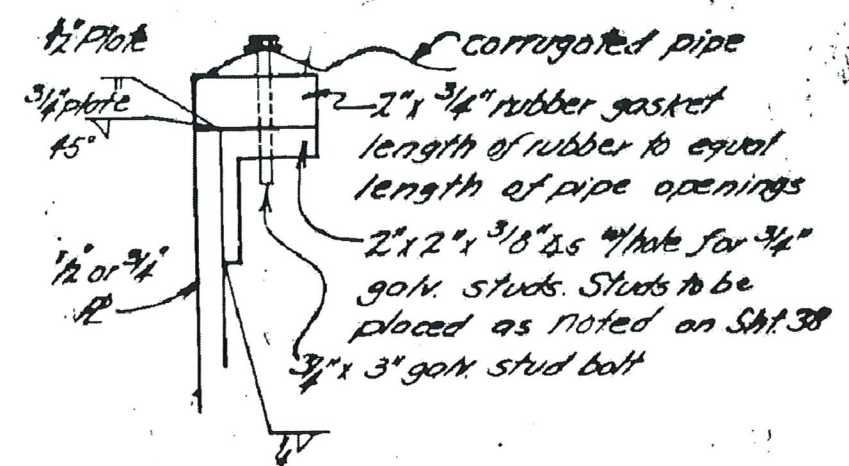 1/2" Plate
corrugated pipe
3/4" plate
45°
2" x 3/4" rubber gasket
length of rubber to equal
length of pipe openings
2" x 2" x 3/8" ∠s w/hole for 3/4"
galv. studs. Studs to be
placed as noted on Sht. 38
1/2" or 3/4"
PL
3/4" x 3" galv. stud bolt